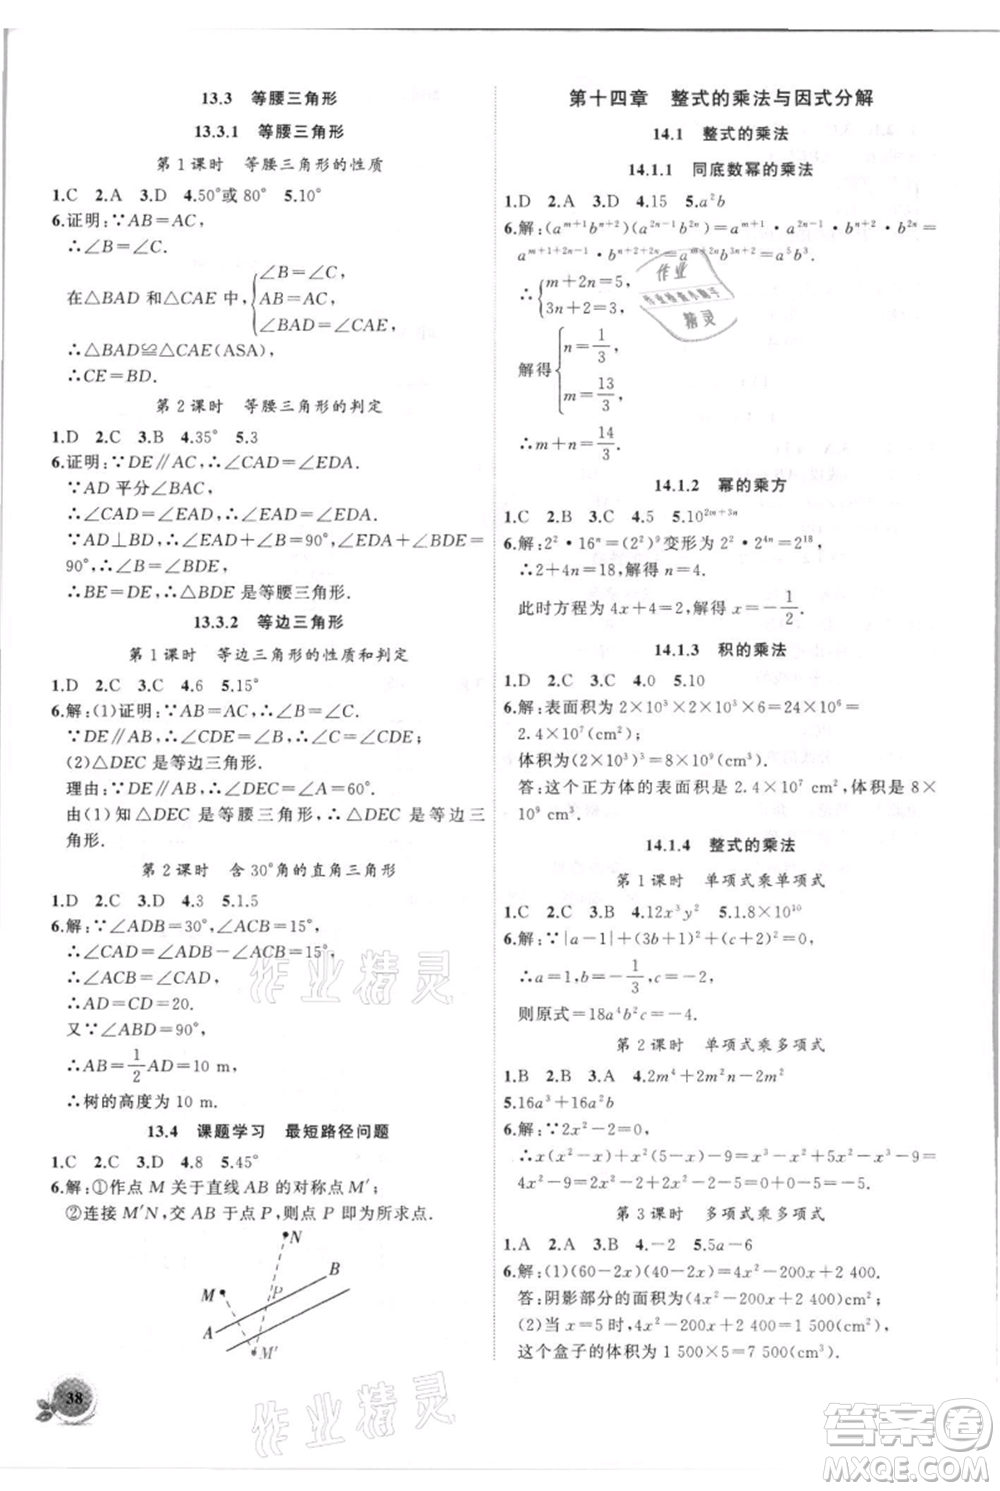 13.3 等腰三角形
13.3.1 等腰三角形
第1课时 等腰三角形的性质
1.C 2.A 3.D 4.50°或80° 5.3
6.证明:∵AB=AC,
∴∠B=∠C.
在△BAD和△CAE中,{∠B=∠C,
AB=AC,
∠BAD=∠CAE,
∴△BAD≌△CAE(ASA).
∴CE=BD.
第2课时 等腰三角形的判定
1.D 2.C 3.B 4.35° 5.3
6.证明:∵DE∥AC,∴∠CAD=∠EDA.
∵AD平分∠BAC,
∴∠CAD=∠EAD,∴∠EAD=∠EDA.
∵AD⊥BD,∴∠EAD+∠B=90°,∠EDA+∠BDE=
90°,∴∠B=∠BDE,
∴BE=DE,∴△BDE是等腰三角形.
13.3.2 等边三角形
第1课时 等边三角形的性质和判定
1.D 2.C 3.C 4.6 5.15°
6.解:(1)证明:∵AB=AC,∴∠B=∠C.
∵DE∥AB,∴∠CDE=∠B,∴∠CDE=∠C.
(2)△DEC是等边三角形.
理由:∵DE∥AB,∴∠DEC=∠A=60°.
由(1)知△DEC是等腰三角形,∴△DEC是等边三
角形.
第2课时 含30°角的直角三角形
1.B 2.C 3.D 4.3 5.1.5
6.解:∵∠ADB=30°,∠ACB=15°,
∴∠CAD=∠ADB-∠ACB=15°.
∴∠ACD=∠CAD,
∴AD=CD=20.
又∵∠ABD=90°,
∴AB=1/2AD=10 m,
∴树的高度为10 m.
13.4 课题学习 最短路径问题
1.C 2.C 3.D 4.8 5.45°
6.解:①作点M关于直线AB的对称点M′;
②连接M′N,交AB于点P,则点P即为所求点.
N
B
M
P
A
M′
38
第十四章 整式的乘法与因式分解
14.1 整式的乘法
14.1.1 同底数幂的乘法
1.D 2.A 3.D 4.15 5.a²b
6.解:(aᵐ⁺¹bⁿ⁺²)(a²ⁿ⁻¹b²ⁿ)=aᵐ⁺¹·a²ⁿ⁻¹·bⁿ⁺²·b²ⁿ=
aᵐ⁺¹⁺²ⁿ⁻¹·bⁿ⁺²⁺²ⁿ=aᵐ⁺²ⁿb³ⁿ⁺²=a⁵b³.
∴{m+2n=5,
3n+2=3,
解得{n=1/3,
m=13/3,
∴m+n=14/3.
14.1.2 幂的乘方
1.C 2.B 3.C 4.5 5.10²ᵐ⁺³ⁿ
6.解:2²·16ⁿ=(2²)⁹变形为2²·2⁴ⁿ=2¹⁸,
∴2+4n=18,解得n=4.
此时方程为4x+4=2,解得x=-1/2.
14.1.3 积的乘法
1.D 2.C 3.C 4.0 5.10
6.解:表面积为2×10³×2×10³×6=24×10⁶=
2.4×10⁷(cm²);
体积为(2×10³)³=8×10⁹(cm³).
答:这个正方体的表面积是2.4×10⁷cm²,体积是
8×10⁹cm³.
14.1.4 整式的乘法
第1课时 单项式乘单项式
1.C 2.C 3.B 4.12x³y² 5.1.8×10¹⁰
6.解:∵|a-1|+(3b+1)²+(c-2)²=0,
∴a=1,b=-1/3,c=2,
则原式=18a⁴b²c=-4.
第2课时 单项式乘多项式
1.B 2.B 3.A 4.2m⁴+2m³-2m²
5.16a³+16a²b
6.解:∵2x²-x-5=0,∴2x²-x=5,
∴x(x²-x)+x²(5-x)-9=x³-x²+5x²-x³-
9=4x²-2x-9=2(2x²-x)-9=2×5-9=1.
第3课时 多项式乘多项式
1.A 2.A 3.B 4.-2 5.5a-6
6.解:(1)(60-2x)(40-2x)=4x²-200x+2 400.
答:阴影部分的面积为(4x²-200x+2 400)cm²;
(2)当x=5时,4x²-200x+2 400=1 500(cm²),
这个盒子的体积为1 500×5=7 500(cm³).
作业精灵
作业精灵
作业
精灵
答案圈
MXQE.COM